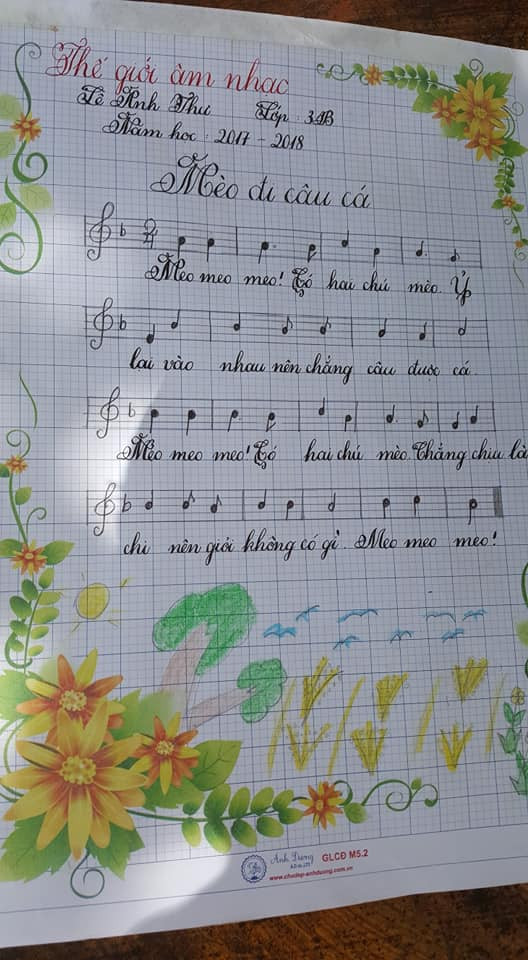 Thế giới âm nhạc
Lê Anh Thư Lớp : 3.1B
Năm học : 2017 - 2018
Mèo đi câu cá
2
4
Meo meo meo! Có hai chú mèo. Ỷ
lại vào nhau nên chẳng câu được cá.
Meo meo meo! Có hai chú mèo. Chẳng chịu làm
chi nên giỏi không có gì. Meo meo meo!
Ánh Dương
GLCĐ M5.2
www.chudep-anhduong.com.vn